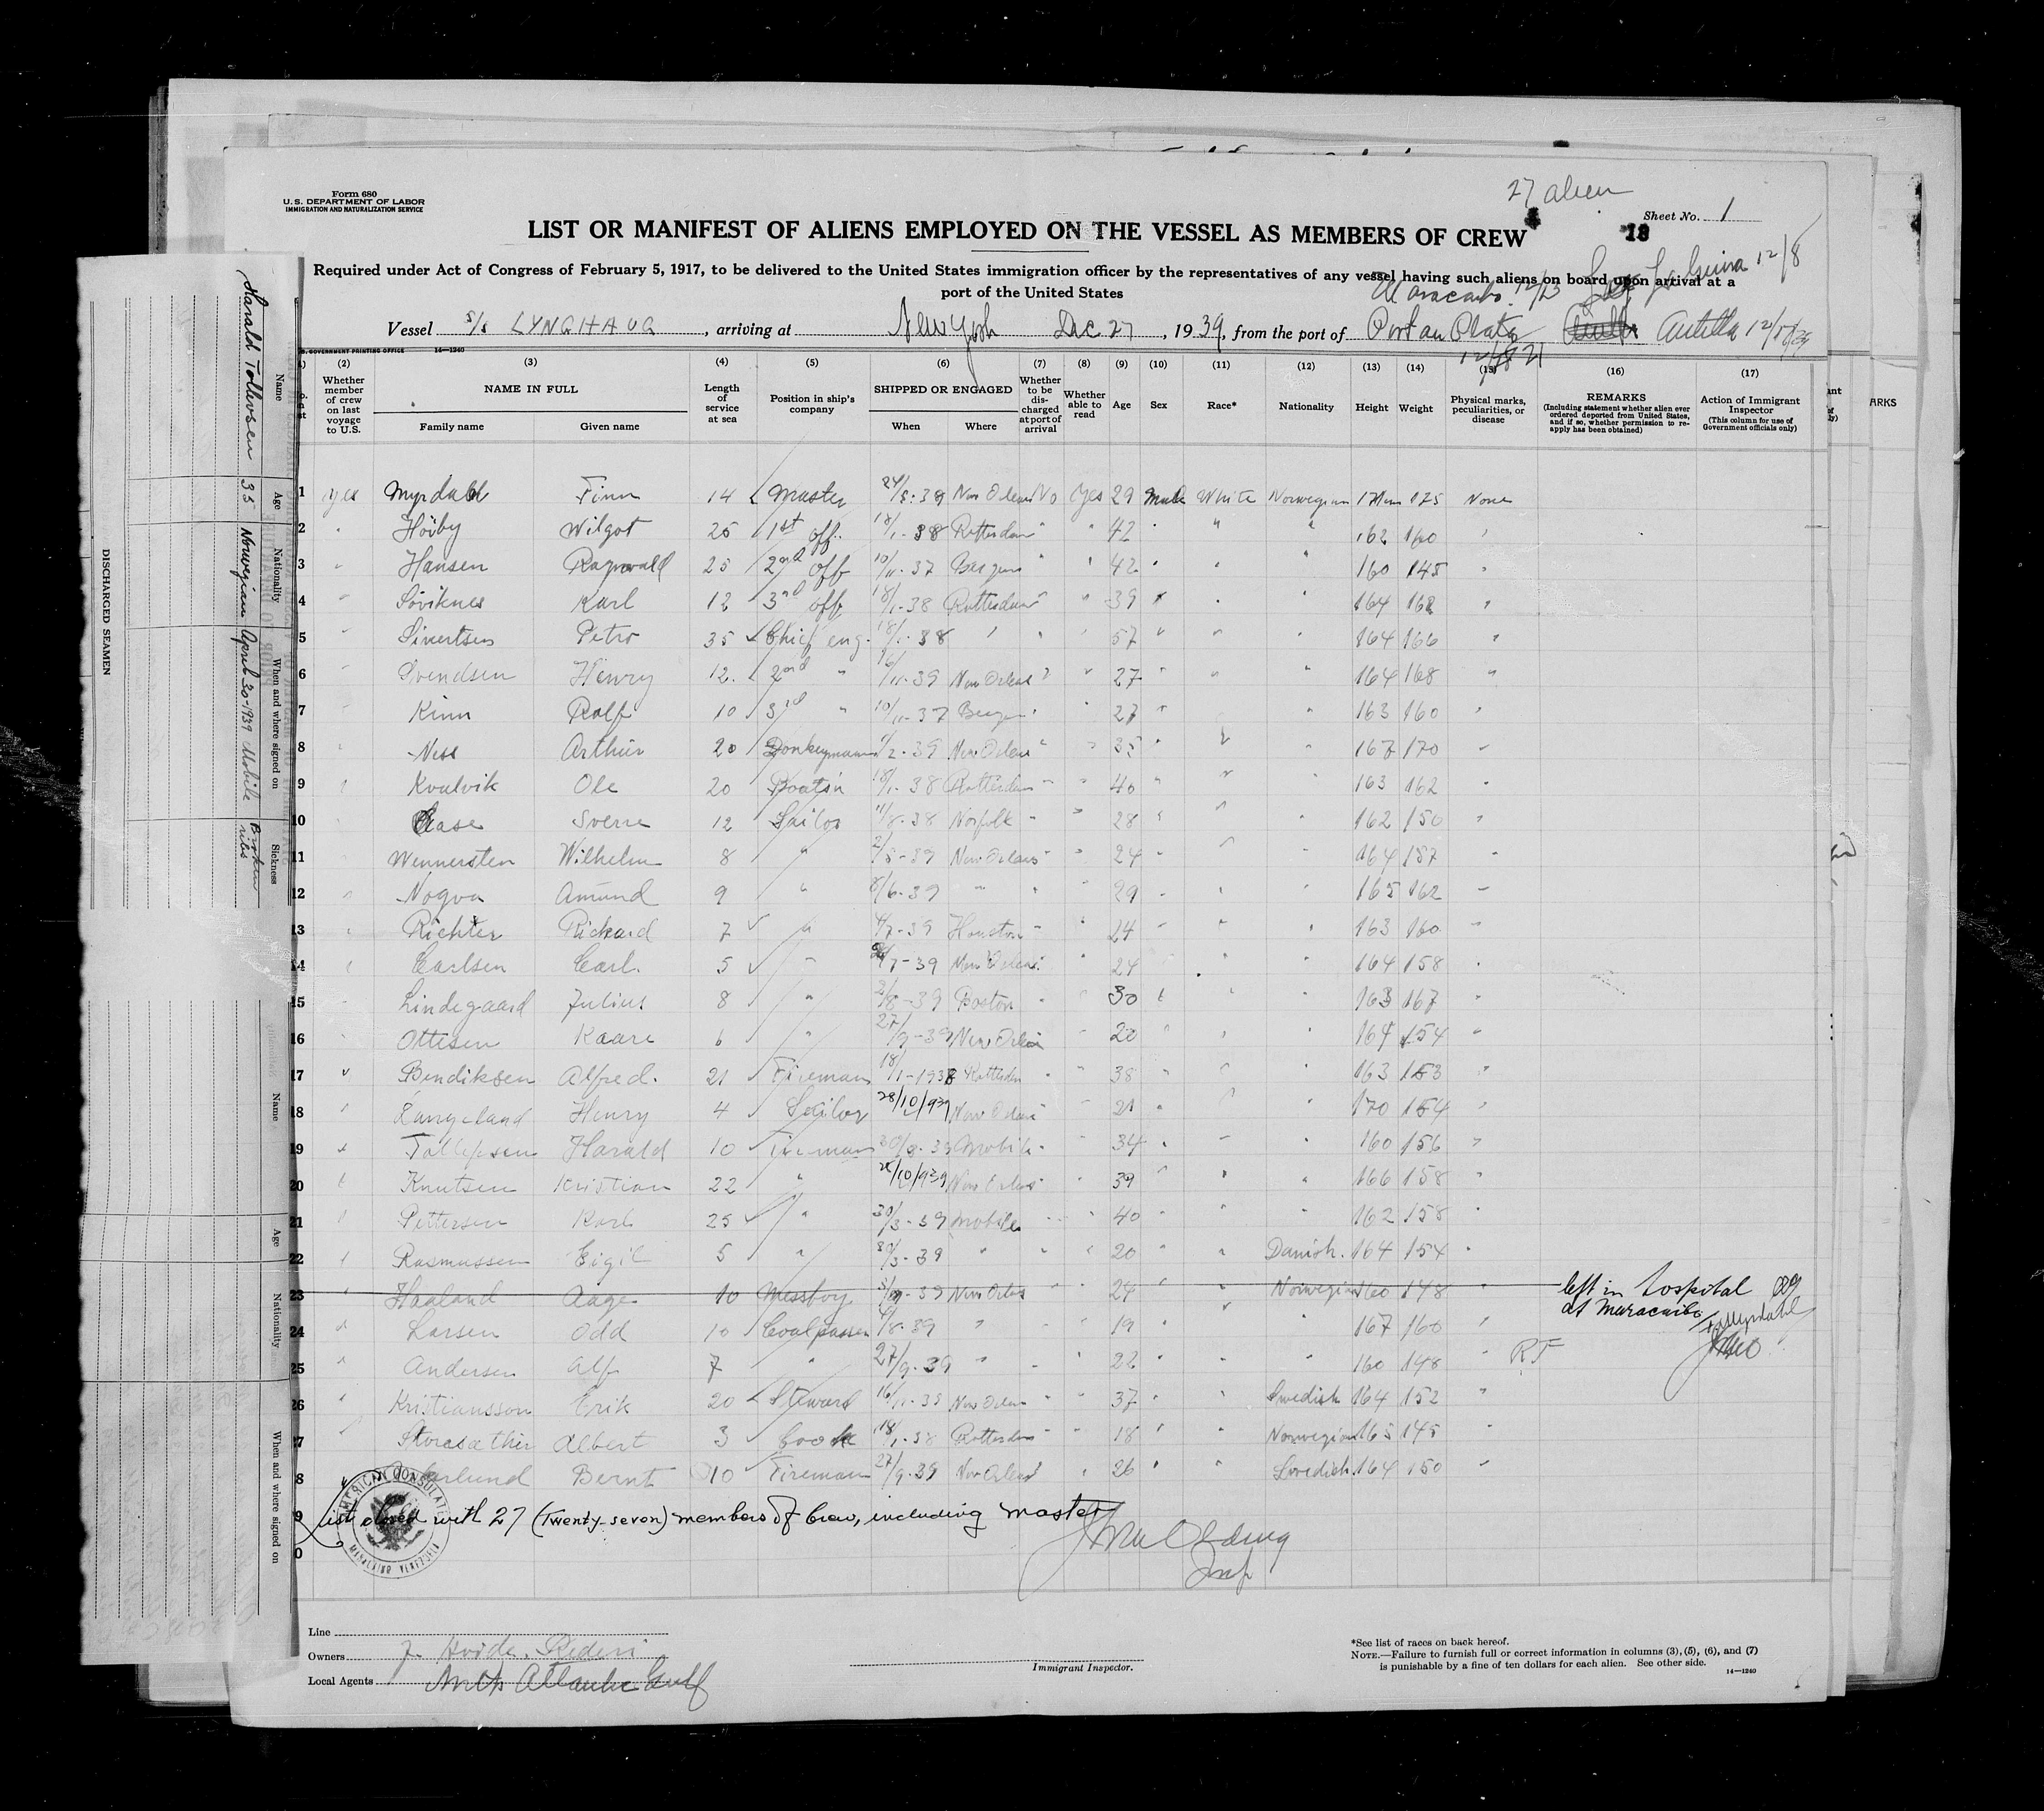 Form 680
U. S. DEPARTMENT OF LABOR
IMMIGRATION AND NATURALIZATION SERVICE
27 alien
Sheet No. 1
LIST OR MANIFEST OF ALIENS EMPLOYED ON THE VESSEL AS MEMBERS OF CREW
18
Required under Act of Congress of February 5, 1917, to be delivered to the United States immigration officer by the representatives of any vessel having such aliens on board upon arrival at a
port of the United States
Maracaibo 12/13 La Guira 12/8
Vessel S/S LYNGHAUG, arriving at New York Dec 27, 1939, from the port of Port au Plata Antilla
(2) (3) (4) (5) (6) (7) (8) (9) (10) (11) (12) (13) (14) (15) (16) (17)
Whether member of crew on last voyage to U.S. NAME IN FULL Family name Given name Length of service at sea Position in ship's company SHIPPED OR ENGAGED When Where Whether to be discharged at port of arrival Whether able to read Age Sex Race* Nationality Height Weight Physical marks, peculiarities, or disease REMARKS (Including statement whether alien ever ordered deported from United States, and if so, whether permission to reapply has been obtained) Action of Immigrant Inspector (This column for use of Government officials only)
1 yes Myrdahl Finn 14 Master New Orleans No Yes 29 Male White Norwegian 175 None
2 " Höiby Wilgot 25 1st off. 18/1-38 Rotterdam " " 42 " " " 162 160 "
3 " Hansen Ragnvald 25 2nd off 10/11-37 Bergen " " 42 " " " 160 145 "
4 " Söviknes Karl 12 3rd off 18/1-38 Rotterdam " " 39 " " " 164 162 "
5 " Sivertsen Petro 35 Chief eng. 18/1-38 " " " 57 " " " 164 166 "
6 " Svendsen Henry 12 2nd " 16/11-39 New Orleans " " 27 " " " 164 168 "
7 " Kinn Rolf 10 3rd " 10/11-37 Bergen " " 27 " " " 163 160 "
8 " Ness Arthur 20 Donkeyman New Orleans " " 35 " " " 167 170 "
9 " Kvalvik Ole 20 Boats'n 18/1-38 Rotterdam " " 40 " " " 163 162 "
10 Aase Sverre 12 Sailor 11/8-38 Norfolk " " 28 " " " 162 150 "
11 " Wennersten Wilhelm 8 " New Orleans " " 24 " " 164 157 "
12 " Nogva Amund 9 " 8/6-39 " " " 29 " " " 165 162 "
13 " Richter Rickard 7 " 4/7-39 Houston " " 24 " " " 163 160 "
14 " Carlsen Carl. 5 " New Orleans " " 24 " " 164 158 "
15 " Lindegaard Julius 8 " Boston " " 30 " " " 163 167 "
16 " Ottesen Kaare 6 " 27/9-39 New Orleans " 20 " " " 164 154 "
17 " Bendiksen Alfred. 21 Fireman 18/1-1938 Rotterdam " " 38 " " " 163 153 "
18 " Langeland Henry 4 Sailor 28/10/939 New Orleans " 21 " " " 170 154 "
19 " Tollefsen Harald 10 Fireman Mobile " 34 " " 160 156 "
20 " Knutsen Kristian 22 " New Orleans " 39 " " " 166 158 "
21 " Pettersen Karl 25 " 30/3-39 Mobile " " 40 " " " 162 158 "
22 " Rasmussen Eigil 5 " 30/3-39 " " " 20 " " Danish. 164 154 "
23 " Haaland Aage 10 Messboy New Orleans " " 24 " " Norwegian 160 148 " left in hospital at Maracaibo
24 " Larsen Odd 10 Coalpasser " " 19 " " " 167 160 "
25 " Andersen Alf 7 " 27/9-39 " " 22 " " " 160 148 " RF
26 " Kristiansson Erik 20 Steward New Orleans " " 37 " " Swedish 164 152 "
27 " Albert 3 Cook 18/1-38 Rotterdam " " 18 " " Norwegian 165 145 "
28 Bernt 10 Fireman 27/9-39 New Orleans " 26 " " Swedish 164 150 "
List closed with 27 (Twenty-seven) members of Crew, including master
AMERICAN CONSULATE
MARACAIBO VENEZUELA
Insp
Line
Owners Rederi
Local Agents North Atlantic Gulf
Immigrant Inspector.
*See list of races on back hereof.
NOTE.—Failure to furnish full or correct information in columns (3), (5), (6), and (7)
is punishable by a fine of ten dollars for each alien. See other side.
14—1240
U. S. GOVERNMENT PRINTING OFFICE 14—1240
DISCHARGED SEAMEN
Name Age Nationality When and where signed on Sickness
Harald Tollevsen 35 Norwegian April 20-1939 Mobile Broken ribs
Name Age Nationality When and where signed on
ARKS